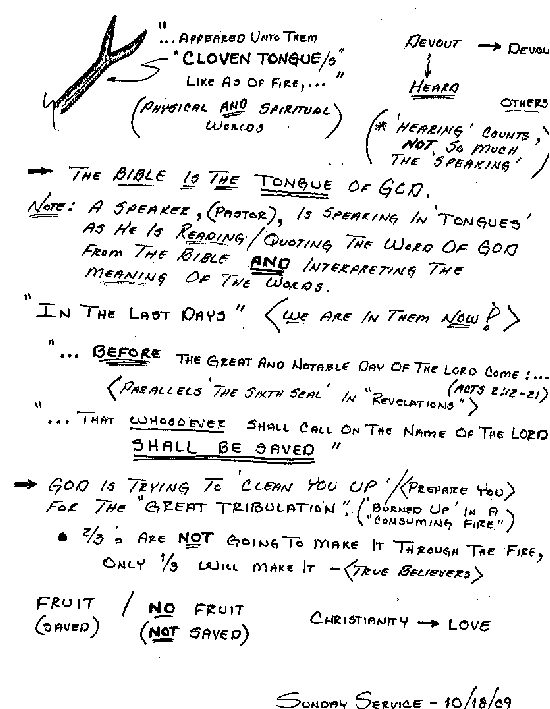 "... APPEARED UNTO THEM
"CLOVEN TONGUE/S"
LIKE AS OF FIRE,..."
(PHYSICAL AND SPIRITUAL
WORLDS
DEVOUT → DEVOU
HEARD
OTHERS
(* 'HEARING' COUNTS,
NOT SO MUCH
THE 'SPEAKING')
→ THE BIBLE IS THE TONGUE OF GOD.
NOTE: A SPEAKER, (PASTOR), IS SPEAKING IN 'TONGUES'
AS HE IS READING/QUOTING THE WORD OF GOD
FROM THE BIBLE AND INTERPRETING THE
MEANING OF THE WORDS.
"IN THE LAST DAYS" <WE ARE IN THEM NOW!>
"... BEFORE THE GREAT AND NOTABLE DAY OF THE LORD COME:...
(ACTS 2:12-21)
<PARALLELS 'THE SIXTH SEAL' IN "REVELATIONS">
"... THAT WHOSOEVER SHALL CALL ON THE NAME OF THE LORD
SHALL BE SAVED"
→ GOD IS TRYING TO 'CLEAN YOU UP'/<PREPARE YOU>
FOR THE "GREAT TRIBULATION". ('BURNED UP' IN A
"CONSUMING FIRE")
• 2/3's ARE NOT GOING TO MAKE IT THROUGH THE FIRE,
ONLY 1/3 WILL MAKE IT - <TRUE BELIEVERS>
FRUIT / NO FRUIT
(SAVED) (NOT SAVED)
CHRISTIANITY → LOVE
SUNDAY SERVICE - 10/18/09